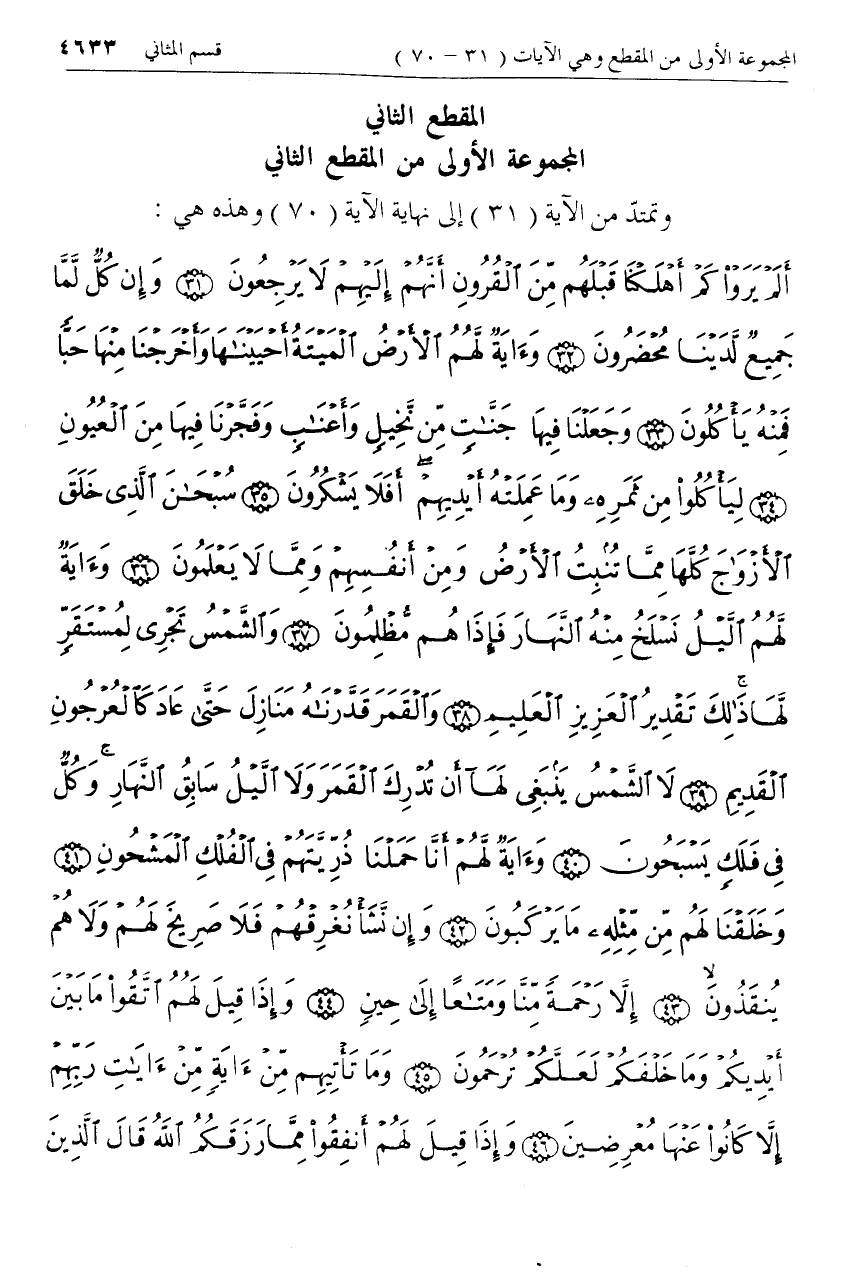 المجموعة الأولى من المقطع وهي الآيات ( ٣١ - ٧٠ ) قسم المثاني ٤٦٣٣
المقطع الثاني
المجموعة الأولى من المقطع الثاني
وتمتدّ من الآية ( ٣١ ) إلى نهاية الآية ( ٧٠ ) وهذه هي :
أَلَمْ يَرَوْا۟ كَمْ أَهْلَكْنَا قَبْلَهُم مِّنَ ٱلْقُرُونِ أَنَّهُمْ إِلَيْهِمْ لَا يَرْجِعُونَ ٣١ وَإِن كُلٌّ لَّمَّا
جَمِيعٌ لَّدَيْنَا مُحْضَرُونَ ٣٢ وَءَايَةٌ لَّهُمُ ٱلْأَرْضُ ٱلْمَيْتَةُ أَحْيَيْنَٰهَا وَأَخْرَجْنَا مِنْهَا حَبًّا
فَمِنْهُ يَأْكُلُونَ ٣٣ وَجَعَلْنَا فِيهَا جَنَّٰتٍ مِّن نَّخِيلٍ وَأَعْنَٰبٍ وَفَجَّرْنَا فِيهَا مِنَ ٱلْعُيُونِ
٣٤ لِيَأْكُلُوا۟ مِن ثَمَرِهِۦ وَمَا عَمِلَتْهُ أَيْدِيهِمْ ۖ أَفَلَا يَشْكُرُونَ ٣٥ سُبْحَٰنَ ٱلَّذِى خَلَقَ
ٱلْأَزْوَٰجَ كُلَّهَا مِمَّا تُنۢبِتُ ٱلْأَرْضُ وَمِنْ أَنفُسِهِمْ وَمِمَّا لَا يَعْلَمُونَ ٣٦ وَءَايَةٌ
لَّهُمُ ٱلَّيْلُ نَسْلَخُ مِنْهُ ٱلنَّهَارَ فَإِذَا هُم مُّظْلِمُونَ ٣٧ وَٱلشَّمْسُ تَجْرِى لِمُسْتَقَرٍّ
لَّهَا ۚ ذَٰلِكَ تَقْدِيرُ ٱلْعَزِيزِ ٱلْعَلِيمِ ٣٨ وَٱلْقَمَرَ قَدَّرْنَٰهُ مَنَازِلَ حَتَّىٰ عَادَ كَٱلْعُرْجُونِ
ٱلْقَدِيمِ ٣٩ لَا ٱلشَّمْسُ يَنۢبَغِى لَهَآ أَن تُدْرِكَ ٱلْقَمَرَ وَلَا ٱلَّيْلُ سَابِقُ ٱلنَّهَارِ ۚ وَكُلٌّ
فِى فَلَكٍ يَسْبَحُونَ ٤٠ وَءَايَةٌ لَّهُمْ أَنَّا حَمَلْنَا ذُرِّيَّتَهُمْ فِى ٱلْفُلْكِ ٱلْمَشْحُونِ ٤١
وَخَلَقْنَا لَهُم مِّن مِّثْلِهِۦ مَا يَرْكَبُونَ ٤٢ وَإِن نَّشَأْ نُغْرِقْهُمْ فَلَا صَرِيخَ لَهُمْ وَلَا هُمْ
يُنقَذُونَ ٤٣ إِلَّا رَحْمَةً مِّنَّا وَمَتَٰعًا إِلَىٰ حِينٍ ٤٤ وَإِذَا قِيلَ لَهُمُ ٱتَّقُوا۟ مَا بَيْنَ
أَيْدِيكُمْ وَمَا خَلْفَكُمْ لَعَلَّكُمْ تُرْحَمُونَ ٤٥ وَمَا تَأْتِيهِم مِّنْ ءَايَةٍ مِّنْ ءَايَٰتِ رَبِّهِمْ
إِلَّا كَانُوا۟ عَنْهَا مُعْرِضِينَ ٤٦ وَإِذَا قِيلَ لَهُمْ أَنفِقُوا۟ مِمَّا رَزَقَكُمُ ٱللَّهُ قَالَ ٱلَّذِينَ